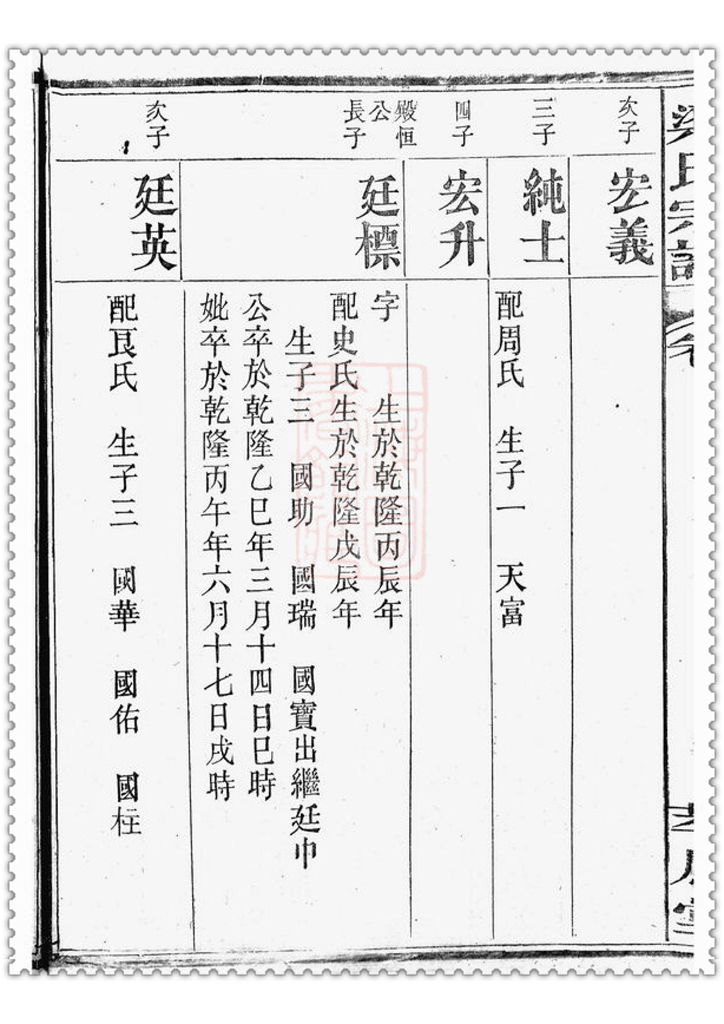 梁氏宗譜
卷
次子
宏義
三子
純士
配周氏　生子一　天富
四子
宏升
毀恒
公
長子
廷標
字　　生於乾隆丙辰年
配史氏生於乾隆戊辰年
生子三　國助　國瑞　國寶出繼廷巾
公卒於乾隆乙巳年三月十四日巳時
妣卒於乾隆丙午年六月十七日戌時
次子
廷英
配良氏　生子三　國華　國佑　國柱